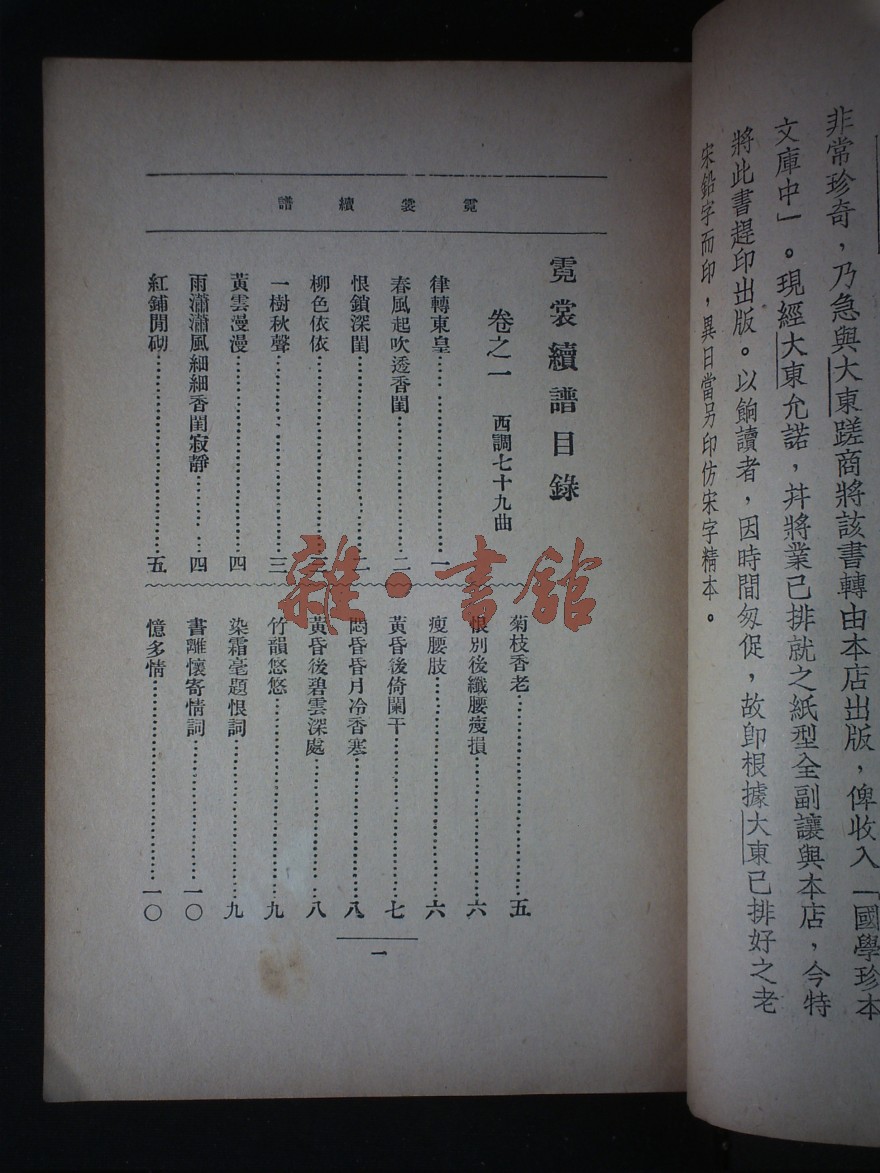 非常珍奇，乃急與大東蹉商將該書轉由本店出版，俾收入「國學珍本
文庫中」。現經大東允諾，幷將業已排就之紙型全副讓與本店，今特
將此書趕印出版。以餉讀者，因時間匆促，故卽根據大東已排好之老
宋鉛字而印，異日當另印仿宋字精本。
霓裳續譜
霓裳續譜目錄
卷之一 西調七十九曲
律轉東皇……一
春風起吹透香閨……二
恨鎖深閨……二
柳色依依……三
一樹秋聲……三
黃雲漫漫……四
雨瀟瀟風細細香閨寂靜……四
紅鋪閒砌……五
菊枝香老……五
恨別後纖腰瘦損……六
瘦腰肢……六
黃昏後倚闌干……七
悶昏昏月冷香寒……八
黃昏後碧雲深處……八
竹韻悠悠……九
染霜毫題恨詞……九
書離懷寄情詞……一〇
憶多情……一〇
一
雜·書館